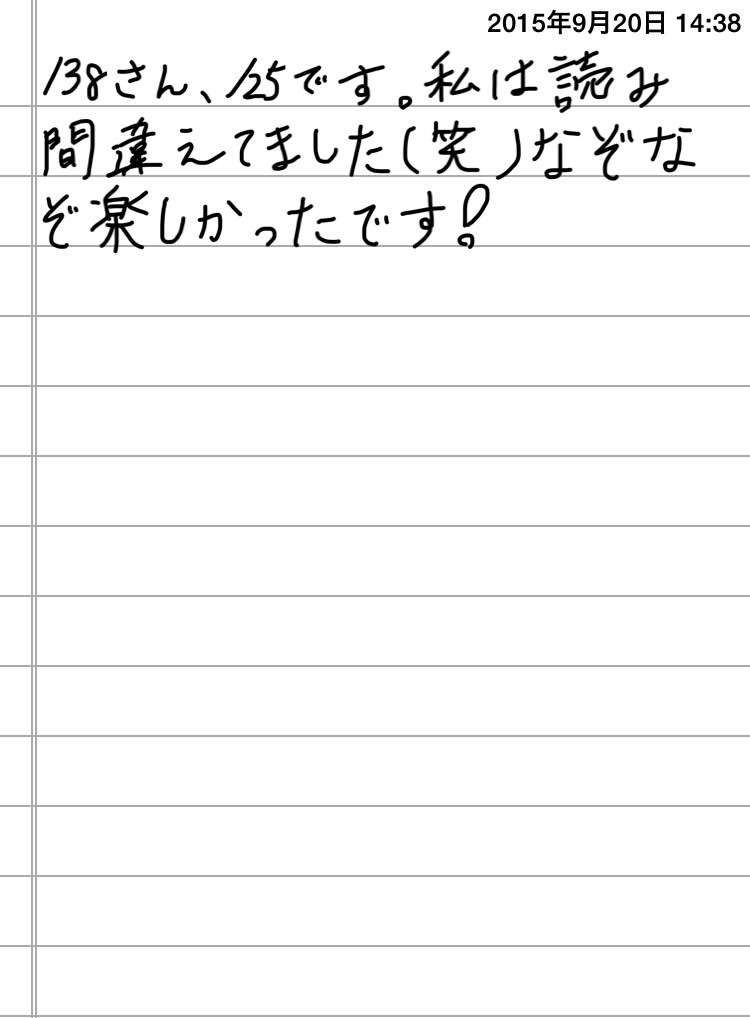 2015年9月20日 14:38
138さん、125です。私は読み
間違えてました(笑)なぞな
ぞ楽しかったです!